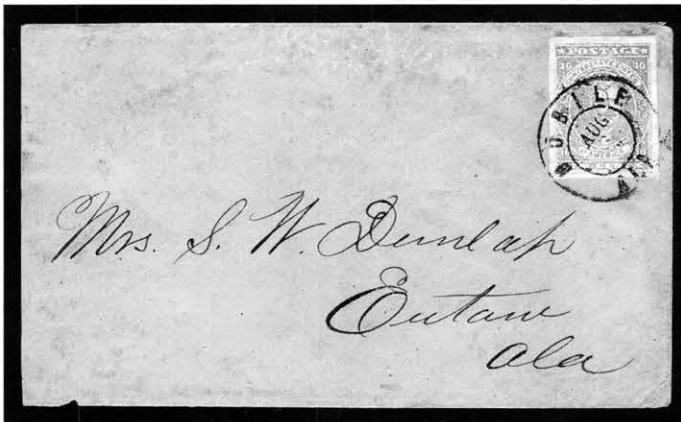 POSTAGE
10 10
MOBILE
AUG
ALA
Mrs. S. W. Dunlap
Eutaw
Ala